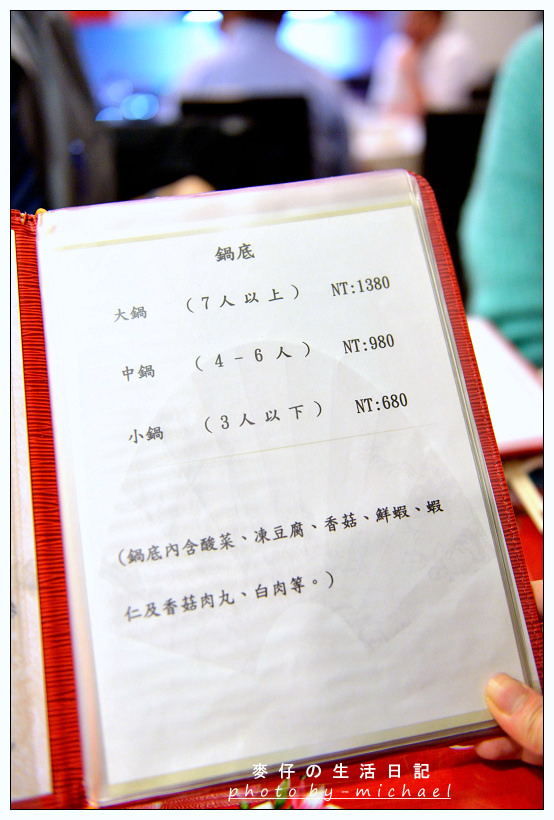 鍋底
大鍋 (7人以上) NT:1380
中鍋 (4-6人) NT:980
小鍋 (3人以下) NT:680
(鍋底內含酸菜、凍豆腐、香菇、鮮蝦、蝦
仁及香菇肉丸、白肉等。)
麥仔の生活日記
photo by-michael